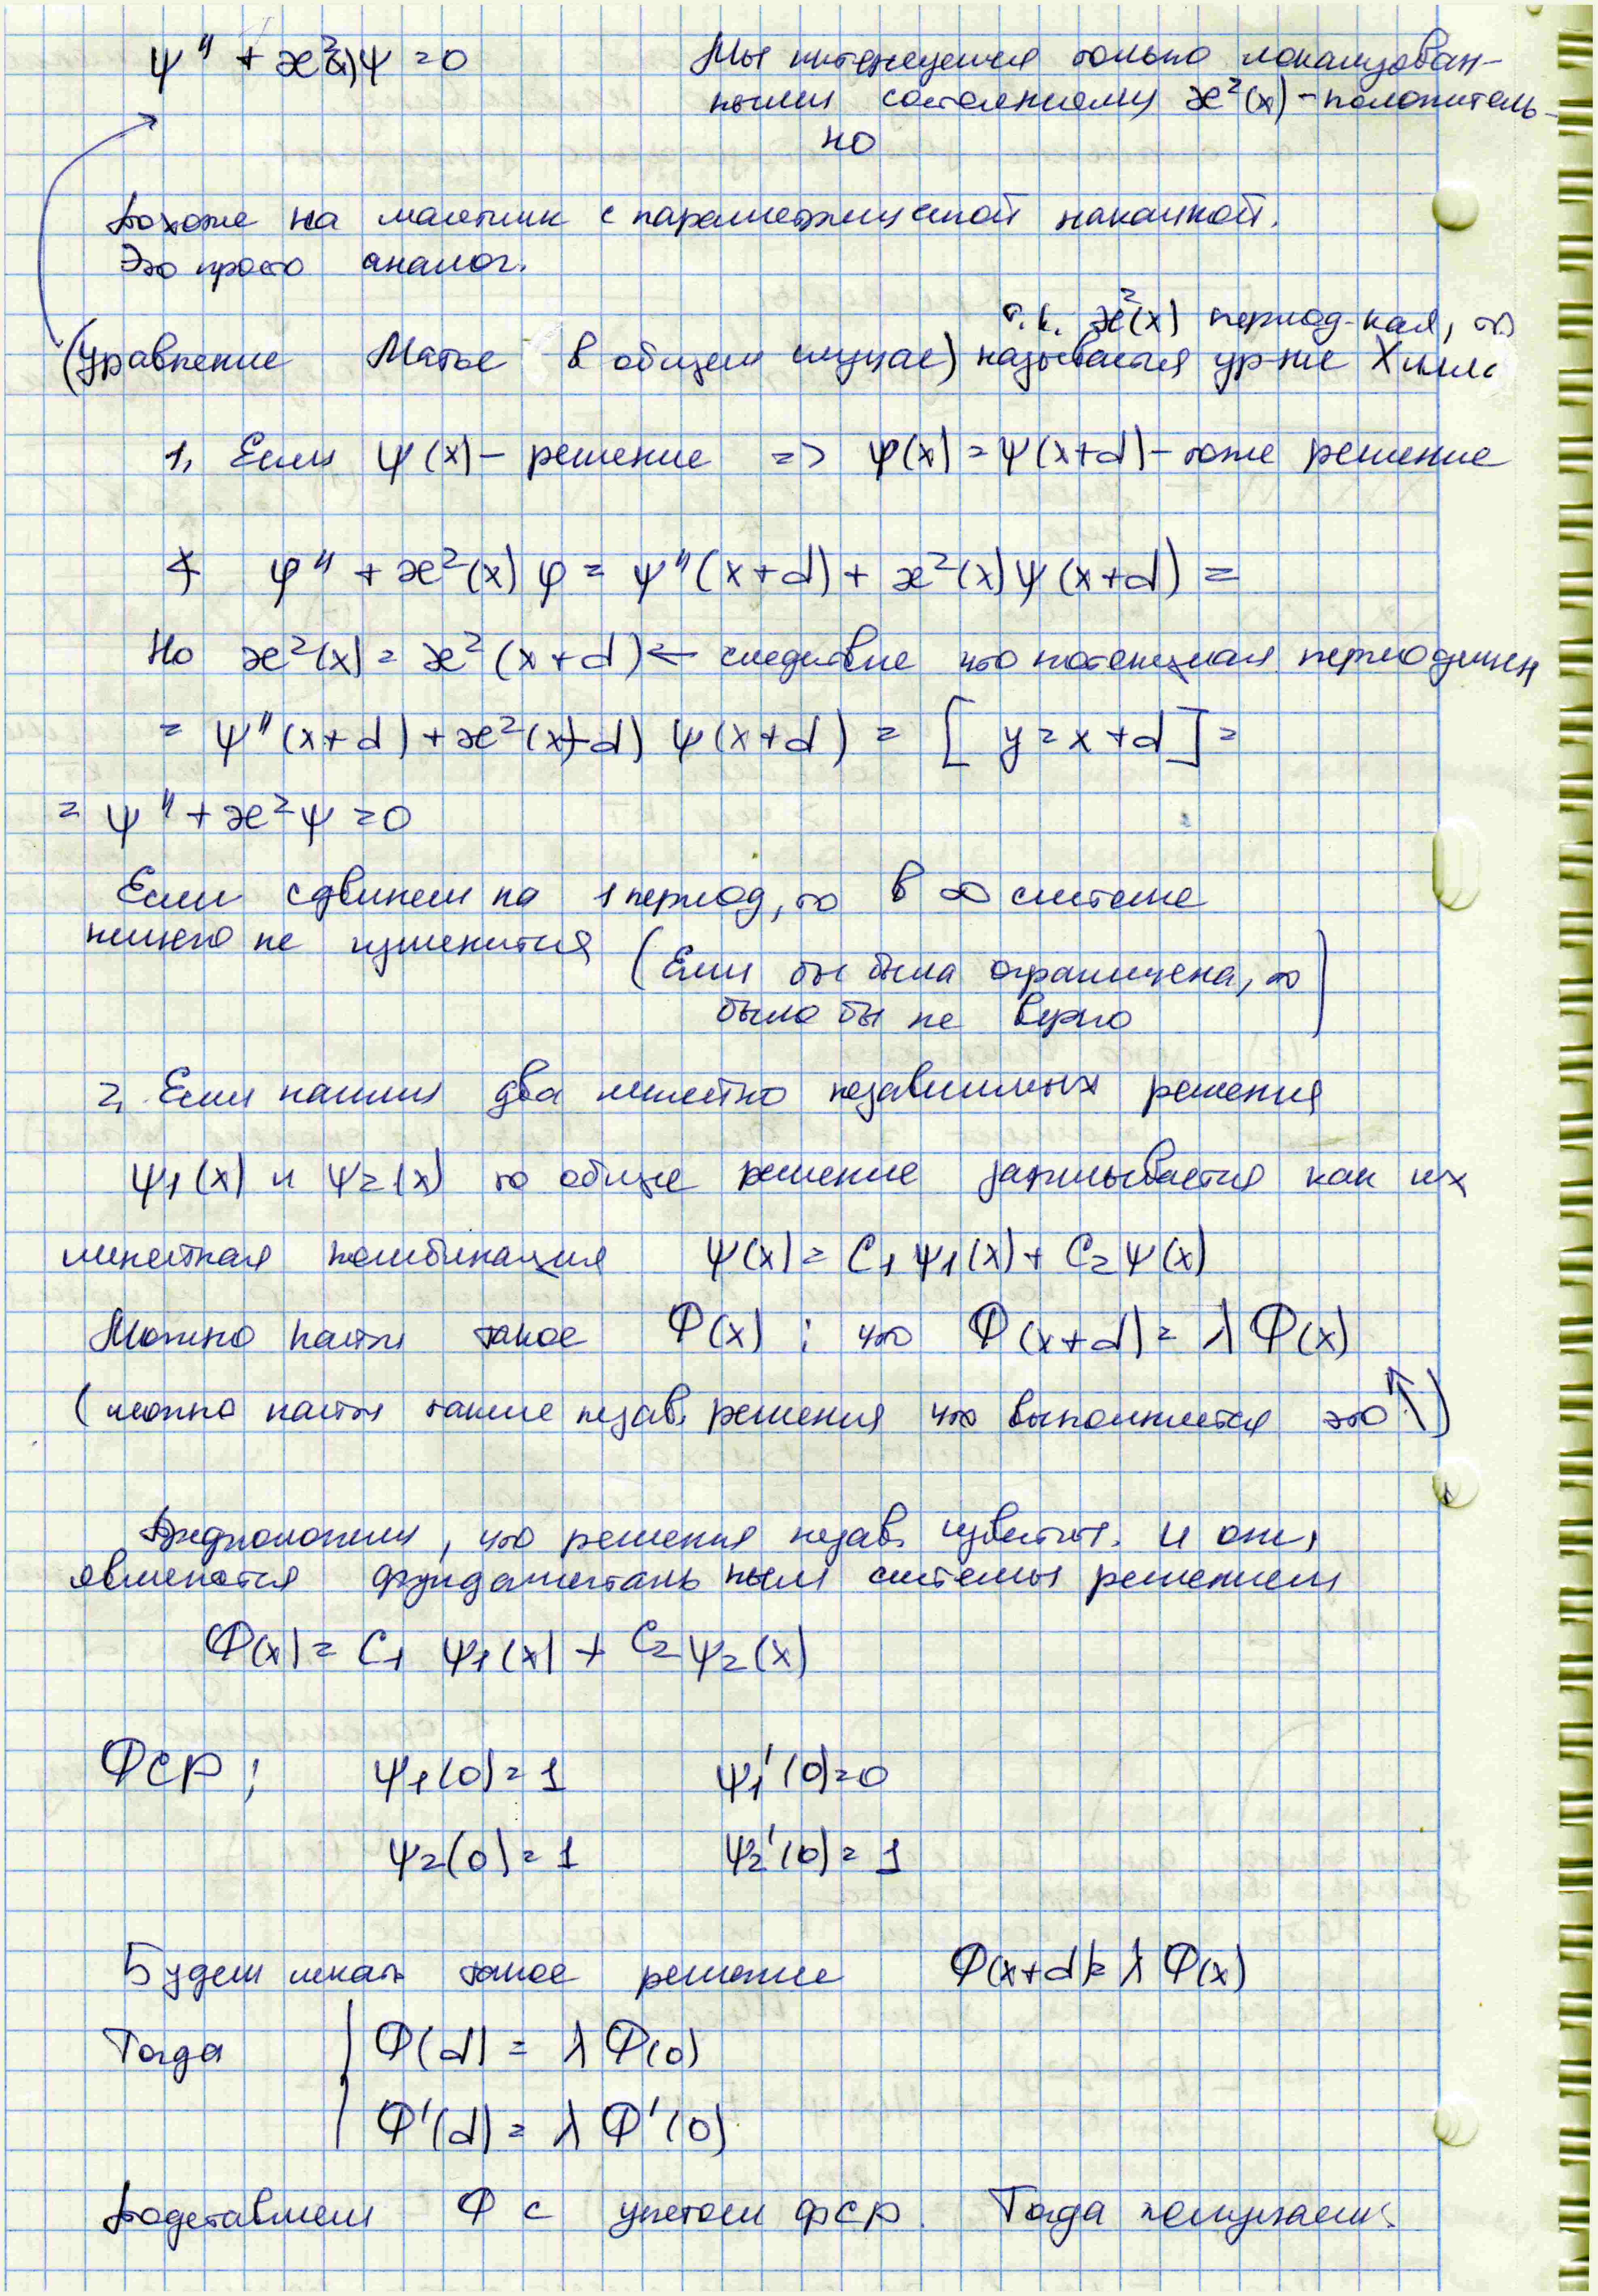 ψ'' + æ²(x)ψ = 0
Мы интересуемся только локализован-
ными состояниями æ²(x) - положитель-
но
Похоже на маятник с параметрической накачкой.
Это просто аналог.
т.к. æ²(x) период-кая, то
(уравнение Матье в общем случае) называется ур-ние Хилла
1. Если ψ(x) - решение => φ(x) = ψ(x+d) - тоже решение
φ'' + æ²(x) φ = ψ''(x+d) + æ²(x) ψ(x+d) =
Но æ²(x) = æ²(x+d) ← следствие что потенциал периодичен
= ψ''(x+d) + æ²(x+d) ψ(x+d) = [ y = x+d ] =
= ψ'' + æ²ψ = 0
Если сдвинем на 1 период, то в ∞ системе
ничего не изменится (Если бы была ограничена, то
было бы не верно)
2. Если нашли два линейно независимых решения
ψ1(x) и ψ2(x) то общее решение записывается как их
линейная комбинация ψ(x) = C1 ψ1(x) + C2 ψ(x)
Можно найти такое Φ(x) ; что Φ(x+d) = λ Φ(x)
(можно найти такие незав. решения что выполняется это ↑)
Предположим, что решения незав. извест. и они
являются фундаментальным системы решением
Φ(x) = C1 ψ1(x) + C2 ψ2(x)
ФСР ; ψ1(0) = 1 ψ1'(0) = 0
ψ2(0) = 1 ψ2'(0) = 1
Будем искать такое решение Φ(x+d) = λ Φ(x)
Тогда | Φ(d) = λ Φ(0)
| Φ'(d) = λ Φ'(0)
Подставляем Φ с учетом фср. Тогда получаем: